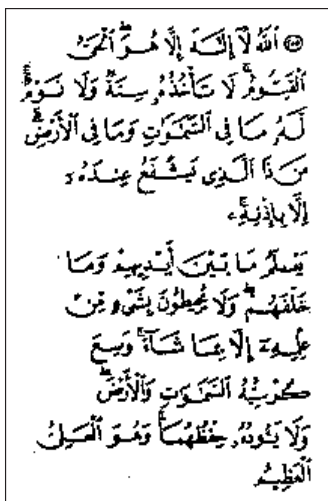 ﴿٢٥٥﴾ ٱللَّهُ لَآ إِلَـٰهَ إِلَّا هُوَ ٱلْحَىُّ
ٱلْقَيُّومُ ۚ لَا تَأْخُذُهُۥ سِنَةٌ وَلَا نَوْمٌ ۚ
لَّهُۥ مَا فِى ٱلسَّمَـٰوَٰتِ وَمَا فِى ٱلْأَرْضِ ۗ
مَن ذَا ٱلَّذِى يَشْفَعُ عِندَهُۥٓ
إِلَّا بِإِذْنِهِۦ ۚ
يَعْلَمُ مَا بَيْنَ أَيْدِيهِمْ وَمَا
خَلْفَهُمْ ۖ وَلَا يُحِيطُونَ بِشَىْءٍ مِّنْ
عِلْمِهِۦٓ إِلَّا بِمَا شَآءَ ۚ وَسِعَ
كُرْسِيُّهُ ٱلسَّمَـٰوَٰتِ وَٱلْأَرْضَ ۖ
وَلَا يَـُٔودُهُۥ حِفْظُهُمَا ۚ وَهُوَ ٱلْعَلِىُّ
ٱلْعَظِيمُ